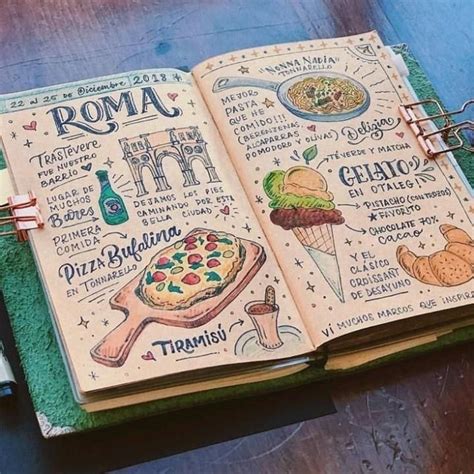 22 al 26 de Diciembre 2018
ROMA
TRASTÉVERE
FUE NUESTRO
BARRIO.
LUGAR DE
MUCHOS
Bares
PRIMERA
COMIDA
DEJAMOS LOS PIES
CAMINANDO POR ESTA
BELLA CIUDAD
PIZZA Bufalina
EN TONNARELLO
TIRAMISÚ
Nonna Nadia
TONNARELLO
MEJOR
PASTA
QUE HE
COMIDO!!!
(BERENJENAS,
ALCAPARRAS,
POMODORO Y OLIVAS)
Delizia
TÉ VERDE Y MATCHA
GELATO
EN OTALEG!
PISTACHO (CON TROZOS)
FAVORITO
CHOCOLATE 70%
CACAO
Y EL
CLÁSICO
CROISSANT
DE DESAYUNO
VI MUCHOS MARCOS QUE